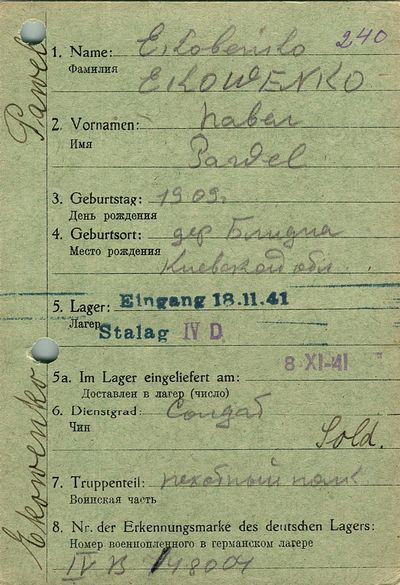 240
1. Name:
Фамилия
EKOWENKO
2. Vornamen:
Имя
Павел
Pawel
3. Geburtstag: 1909г.
День рождения
4. Geburtsort: дер
Место рождения
Киевской обл.
5. Lager: Eingang 18.11.41
Лагерь Stalag IV D
8 XI-41
5a. Im Lager eingeliefert am:
Доставлен в лагерь (число)
6. Dienstgrad: Солдат
Чин
Sold.
7. Truppenteil: пехотный полк
Воинская часть
8. Nr. der Erkennungsmarke des deutschen Lagers:
Номер военнопленного в германском лагере
IV B
Pawel
Ekowenko